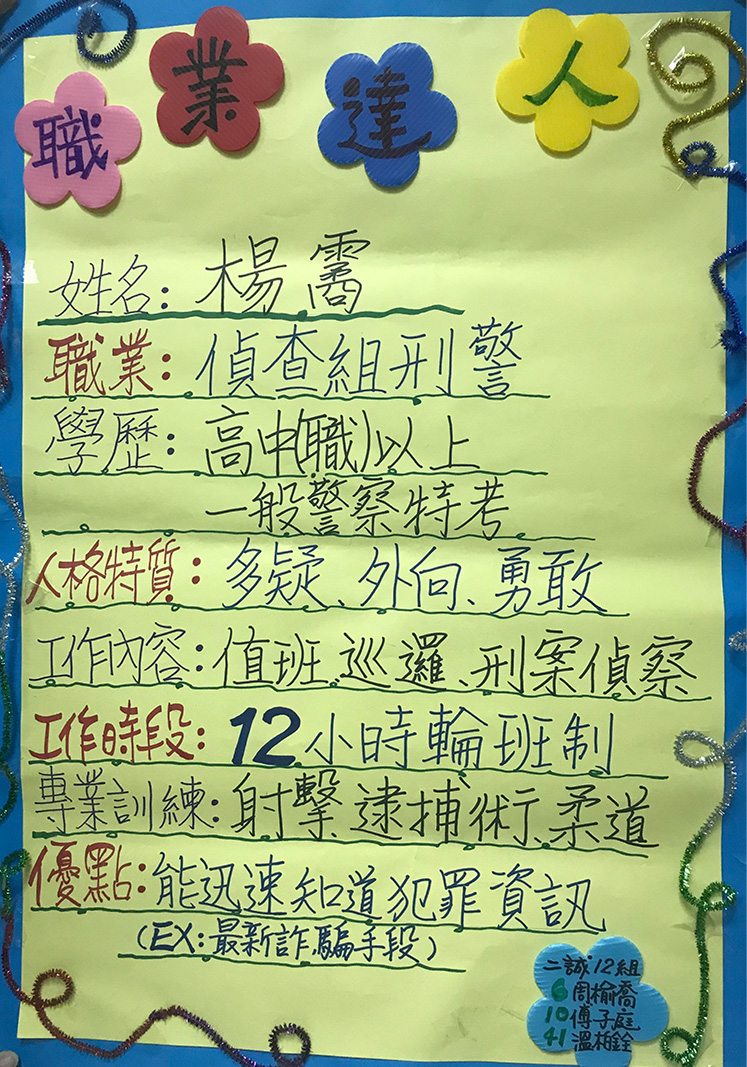 職業達人
姓名：楊霱
職業：偵查組刑警
學歷：高中(職)以上
一般警察特考
人格特質：多疑、外向、勇敢
工作內容：值班、巡邏、刑案偵察
工作時段：12小時輪班制
專業訓練：射擊、逮捕術、柔道
優點：能迅速知道犯罪資訊
(EX：最新詐騙手段)
二誠12組
6周榆喬
10傅子庭
41溫柏銓